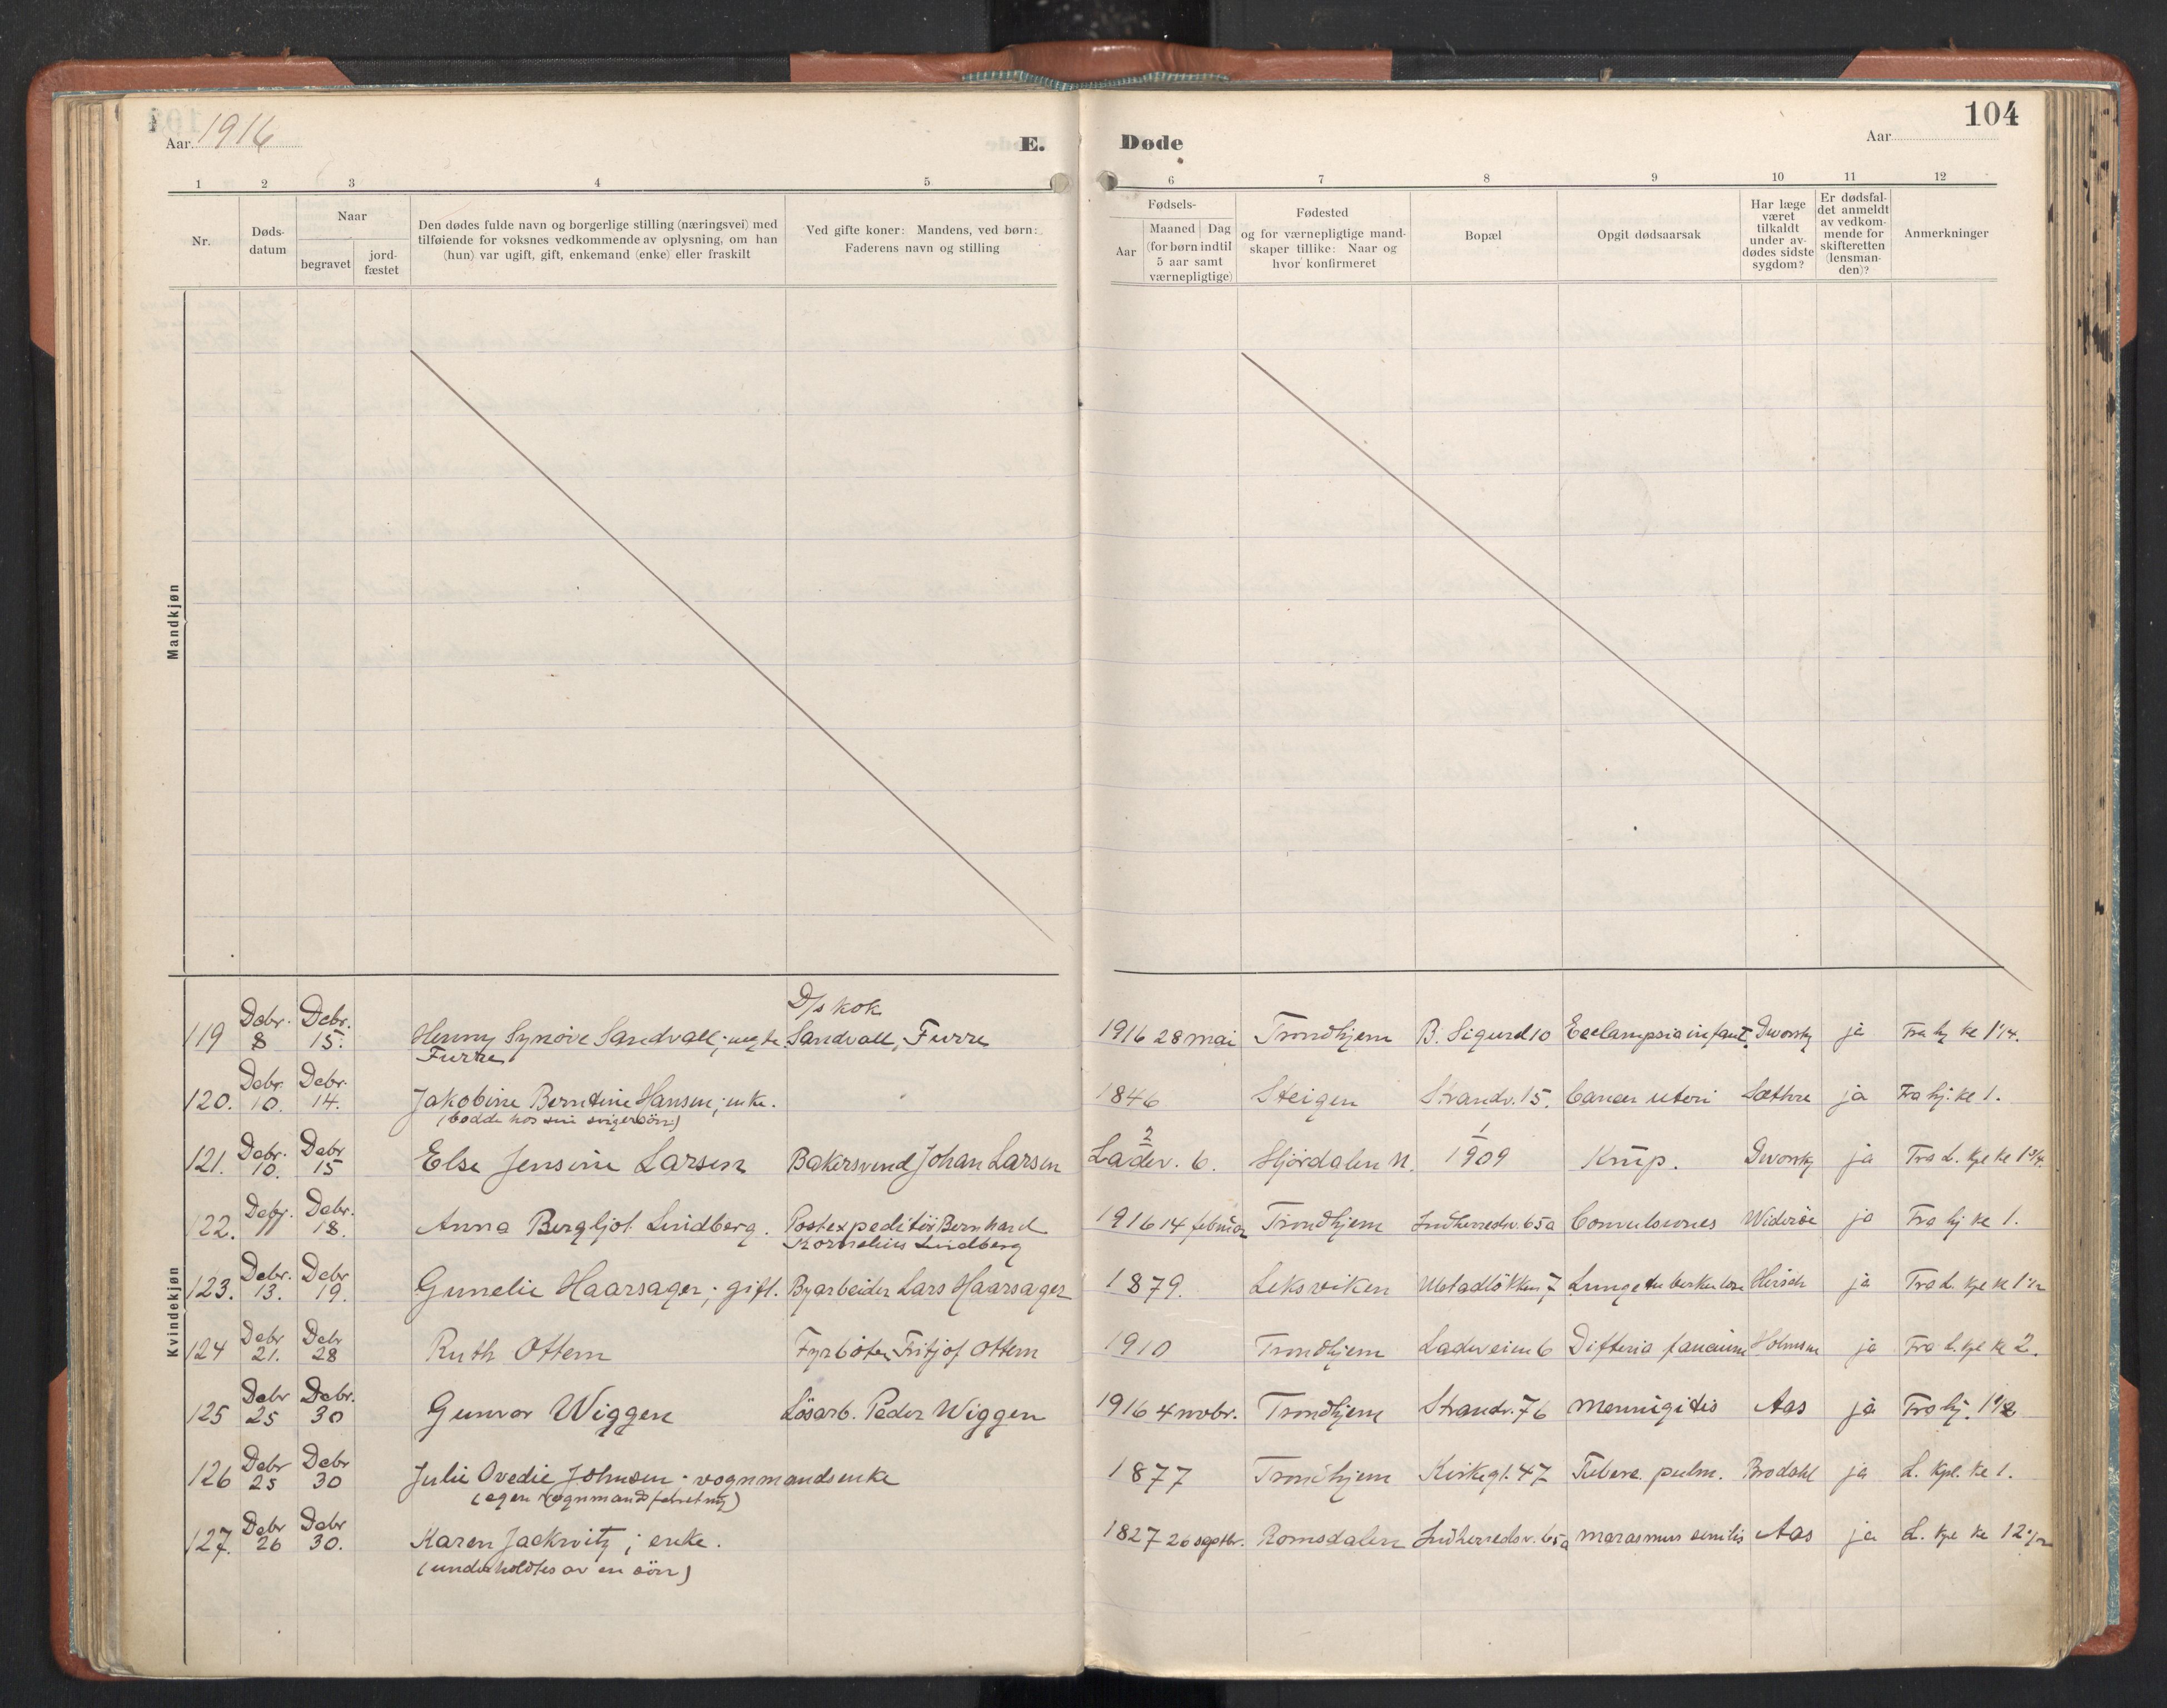 Aar 1916
E. Døde
104
Aar
1 2 3 4 5 6 7 8 9 10 11 12
Nr.
Døds-
datum
Naar
begravet
jord-
fæstet
Den dødes fulde navn og borgerlige stilling (næringsvei) med
tilføiende for voksnes vedkommende av oplysning, om han
(hun) var ugift, gift, enkemand (enke) eller fraskilt
Ved gifte koner: Mandens, ved børn:
Faderens navn og stilling
Fødsels-
Aar
Maaned Dag
(for børn indtil
5 aar samt
værnepligtige)
Fødested
og for værnepligtige mand-
skaper tillike: Naar og
hvor konfirmeret
Bopæl
Opgit dødsaarsak
Har læge
været
tilkaldt
under av-
dødes sidste
sygdom?
Er dødsfal-
det anmeldt
av vedkom-
mende for
skifteretten
(lensman-
den)?
Anmerkninger
Mandkjøn
Kvindekjøn
D/s kok
119 Debr. 8 Debr. 15. Henny Synøve Sandvall; Sandvall, Furre 1916 28 mai Trondhjem B. Sigurd 10 Eclampsia infant. Dworsky ja
Furre
120. Debr. 10. Debr. 14. Jakobine Berntine Hansen; enke. 1846 Steigen Strandv. 15. Cancer uteri Sæthre ja Fra hj. ke 1.
(bodde hos sin svigersön)
121. Debr. 10. Debr 15 Else Jensine Larsen Bakersvend Johan Larsen 2 Ladev. 6. Hjördalen N. 1 1909 Krup. Dworsky ja Fra L. kpe ke 1 3/4.
122. Debr. 11 Debr. 18. Anna Bergljot Lindberg. Postexpeditör Bernhard 1916 14 februar Trondhjem Indherredsv. 65a Convulsiones Wideröe ja Fra hj ke 1.
Kornelius Lindberg
123. Debr. 13. Debr 19. Gunelie Haarsager; gift. Byarbeider Lars Haarsager 1879. Leksviken Ulstadlökken 7 Lungetuberkulose Hirsch ja Fra L. kpe ke 1 1/2
124 Debr 21. Debr 28 Ruth Ottem Fyrböter Fritjof Ottem 1910 Trondhjem Ladeveien 6 Difteria faucium Holmsen ja Fra L. kpl ke 2.
125 Debr 25 Debr. 30 Gunvor Wiggen Lösarb. Peder Wiggen 1916 4 novbr. Trondhjem Strandv. 76 Mennigitis Aas ja Fra hj.
126 Debr 25 Debr 30 Julie Ovedie Johnsen - vognmandsenke 1877 Trondhjem Kirkegt. 47 Tuberc. pulm. Brodahl ja L. kpl. ke 1.
(egen vognmandsforretning)
127. Debr 26 Debr 30. Karen Jackwitz; enke. 1827 26 septbr. Romsdalen Indherredsv. 65a marasmus senilis Aas ja L. kpe ke
(underholdtes av en sön)